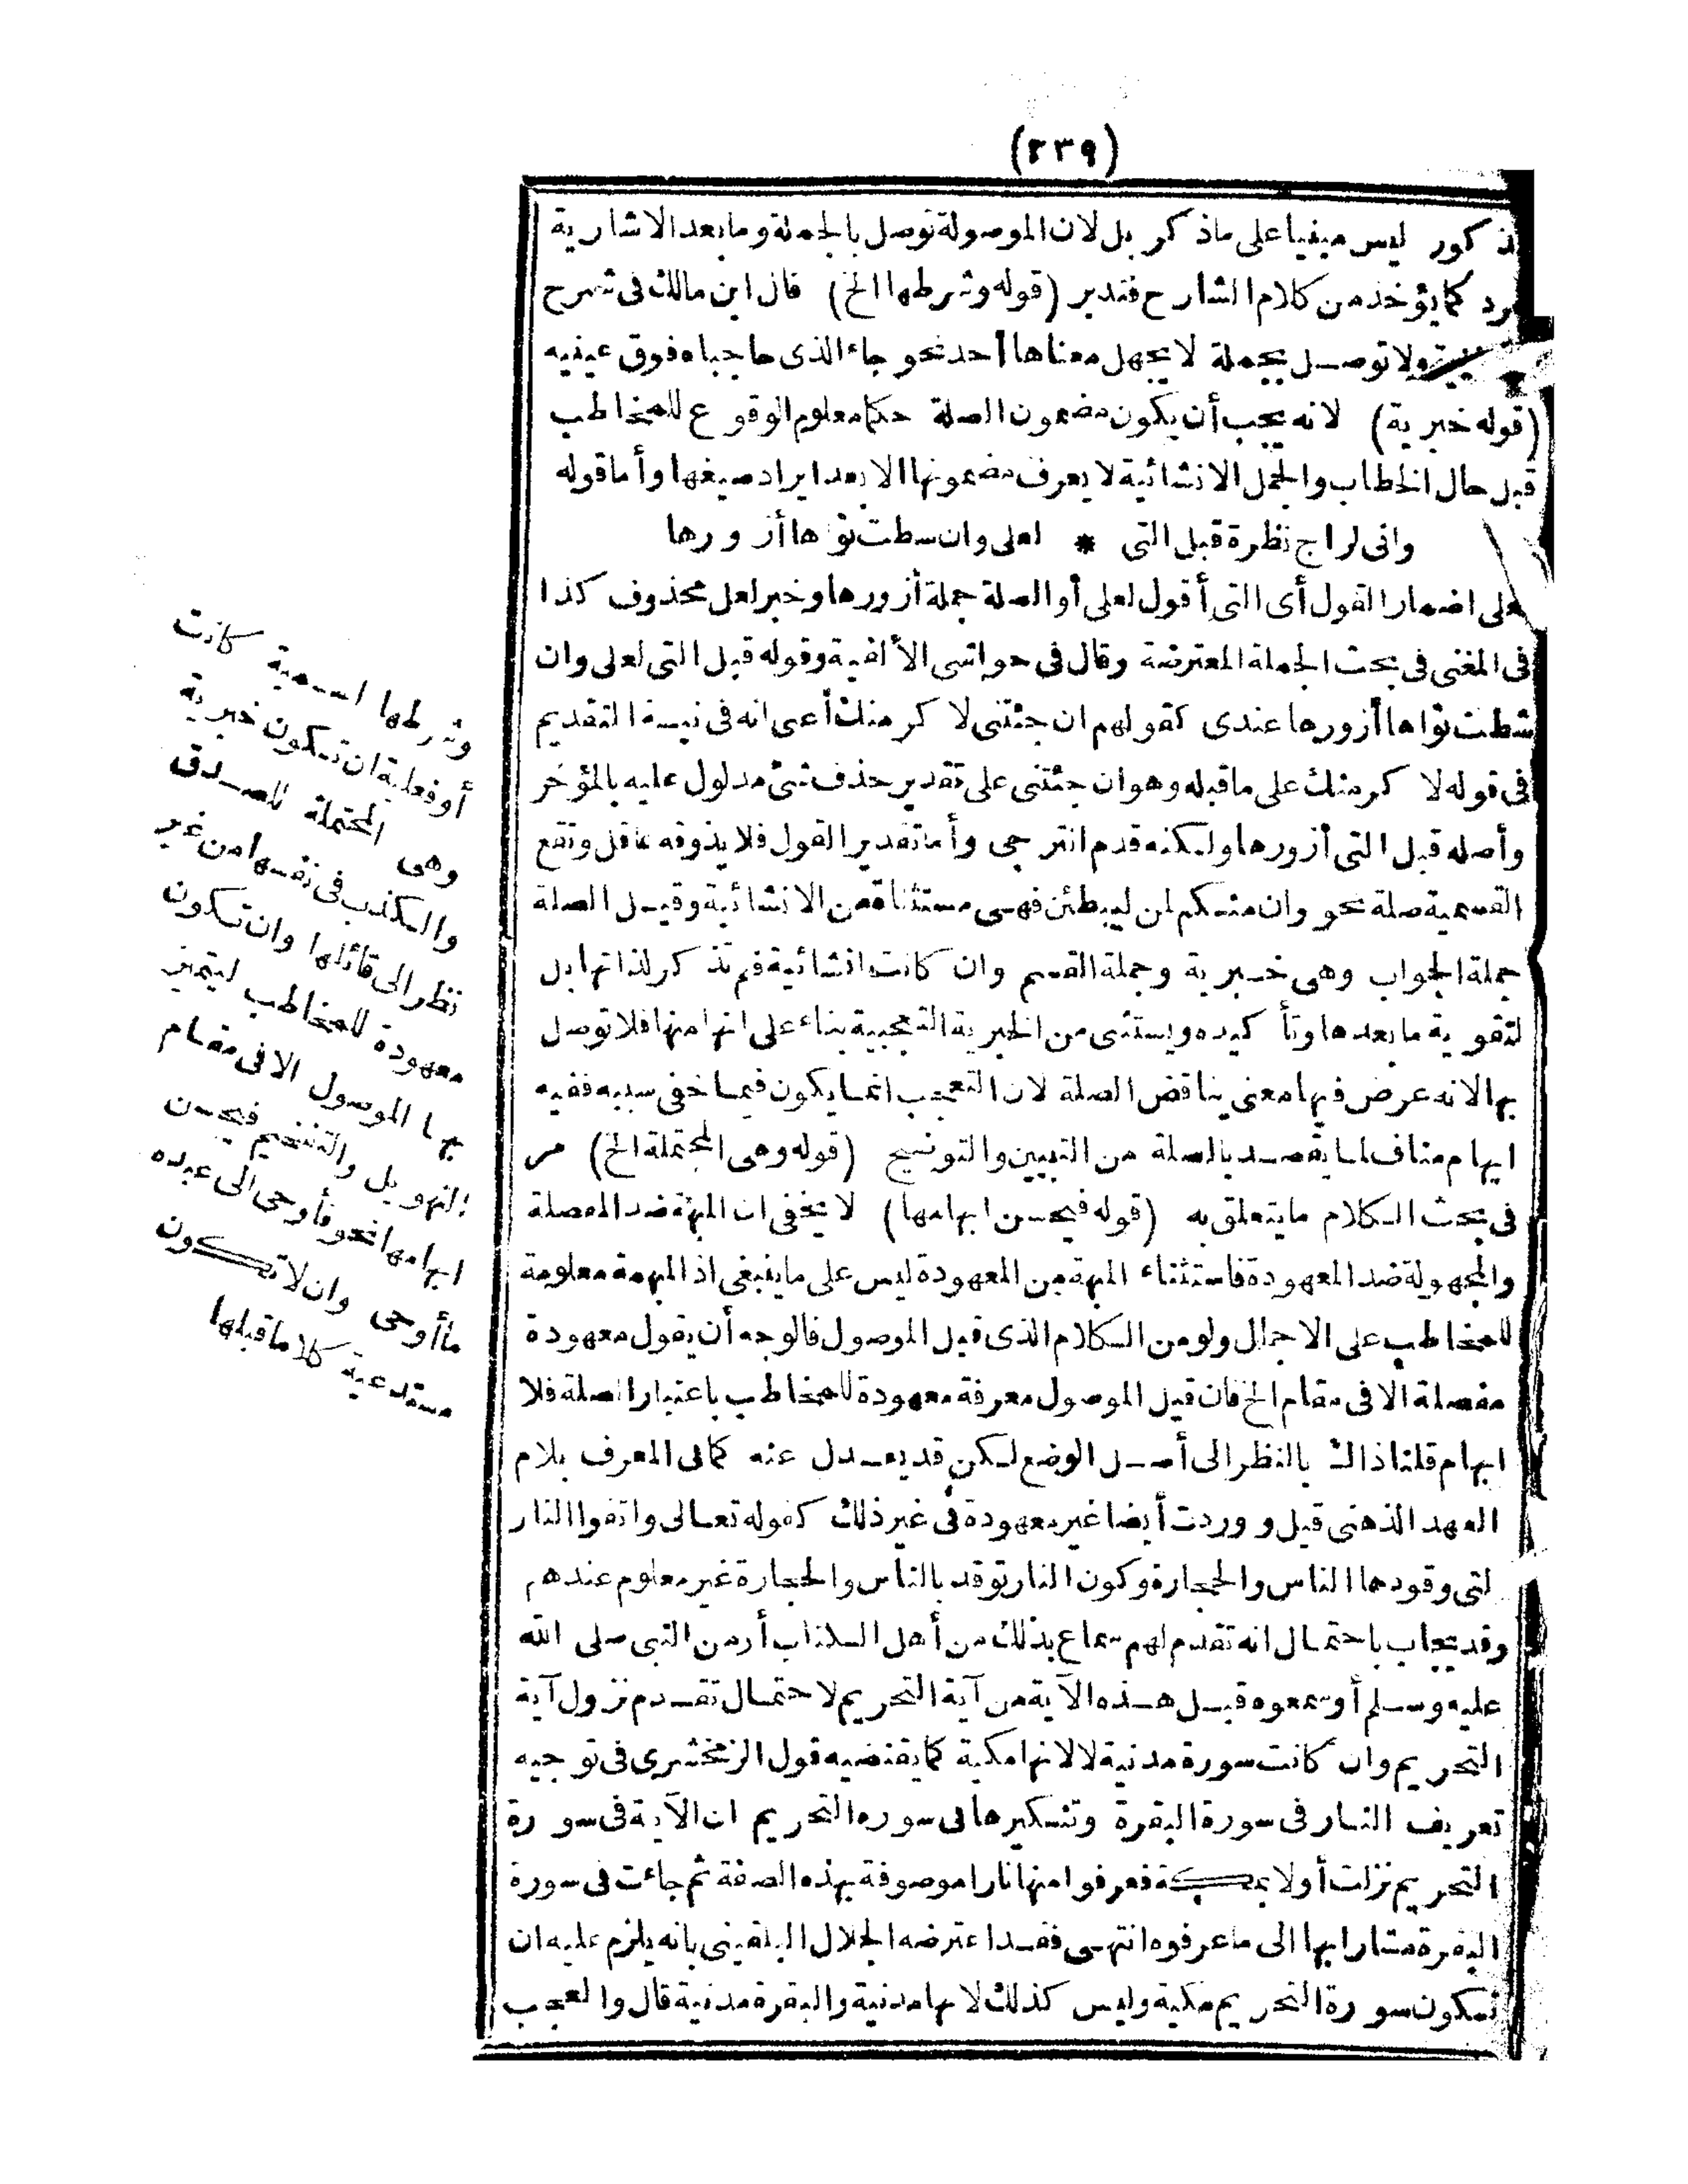 (٢٣٩)
ذكور ليس مبنيا على ماذكر بل لان الموصولة توصل بالجملة وما بعد الاشارية
كما يؤخذ من كلام الشارح فتدبر (قوله وشرطها الخ) قال ابن مالك فى شرح
ولا توصل بجملة لا يجهل معناها أحد نحو جاء الذى حاجباه فوق عينيه
(قوله خبرية) لانه يجب أن يكون مضمون الصلة حكما معلوم الوقوع للمخاطب
قبل حال الخطاب والجمل الانشائية لا يعرف مضمونها الا بعد ايراد صيغها وأما قوله
وانى لراج نظرة قبل التى * لعلى وان سطت نواها أزورها
على اضمار القول أى التى أقول لعلى أو الصلة جملة أزورها وخبر لعل محذوف كذا
فى المغنى فى بحث الجملة المعترضة وقال فى حواشى الألفية وقوله قبل التى لعلى وان
شطت نواها أزورها عندى كقولهم ان جئتنى لا كرمنك أعنى انه فى نية التقديم
فى قوله لا كرمنك على ماقبله وهو ان جئتنى على تقدير حذف شئ مدلول عليه بالمؤخر
وأصله قبل التى أزورها ولكنه قدم الترجى وأما تقدير القول فلا يذوقه عاقل وتقع
القسمية صلة نحو وان منكم لمن ليبطئن فهى مستثناة من الانشائية وقيل الصلة
جملة الجواب وهى خبرية وجملة القسم وان كانت انشائية فم تذكر لذاتها بل
لتقوية ما بعدها وتأكيده ويستثنى من الخبرية التعجبية بناء على انها منها فلا توصل
بها لانه عرض فيها معنى يناقض الصلة لان التعجب انما يكون فيما خفى سببه ففيه
ايهام مناف لما يقصد بالصلة من التبيين والتوضيح (قوله وهى المحتملة الخ) مر
فى بحث الكلام ما يتعلق به (قوله فيحسن ابهامها) لا يخفى ان المبهمة ضد المفصلة
والمجهولة ضد المعهودة فاستثناء المبهمة من المعهودة ليس على ما ينبغى اذ المبهمة معلومة
للمخاطب على الاجمال ولو من الكلام الذى قبل الموصول فالوجه أن يقول معهودة
مفصلة الا فى مقام الخ فان قيل الموصول معرفة معهودة للمخاطب باعتبار الصلة فلا
ابهام قلنا ذاك بالنظر الى أصل الوضع لكن قد يعدل عنه كما فى المعرف بلام
العهد الذهنى قيل ووردت أيضا غير معهودة فى غير ذلك كقوله تعالى واتقوا النار
لتى وقودها الناس والحجارة وكون النار توقد بالناس والحجارة غير معلوم عندهم
وقد يجاب باحتمال انه تقدم لهم سماع بذلك من أهل الكتاب أو من النبى صلى الله
عليه وسلم أو سمعوه قبل هذه الآية من آية التحريم لاحتمال تقدم نزول آية
التحريم وان كانت سورة مدنية لا لانها مكية كما يقتضيه قول الزمخشرى فى توجيه
تعريف النار فى سورة البقرة وتنكيرها فى سورة التحريم ان الآية فى سورة
التحريم نزلت أولا بمكة فعرفوا منها نارا موصوفة بهذه الصفة ثم جاءت فى سورة
البقرة مشارا بها الى ما عرفوه انتهى فقد اعترضه الجلال البلقينى بانه يلزم عليه ان
تكون سورة التحريم مكية وليس كذلك لانها مدنية والبقرة مدنية قال والعجب
وشرطها اسمية كانت
أو فعلية ان تكون خبرية
وهى المحتملة للصدق
والكذب فى نفسها من غير
نظر الى قائلها وان تكون
معهودة للمخاطب ليتميز
بها الموصول الا فى مقام
التهويل والتفخيم فيحسن
ابهامها نحو فأوحى الى عبده
ما أوحى وان لا تكون
مستدعية كلاما قبلها